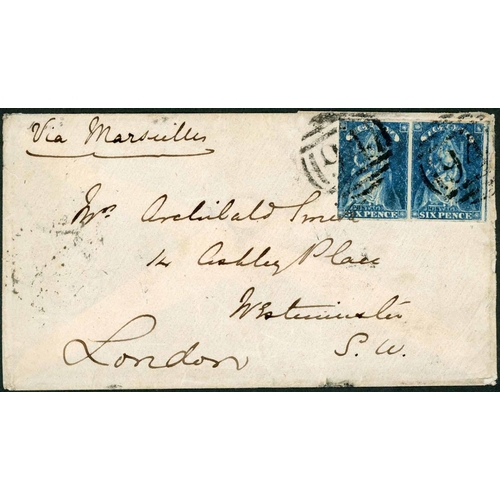 Via Marseilles
Mrs Archibald Smith
14 Ashley Place
Westminster
London S. W.
VICTORIA
SIX PENCE SIX PENCE